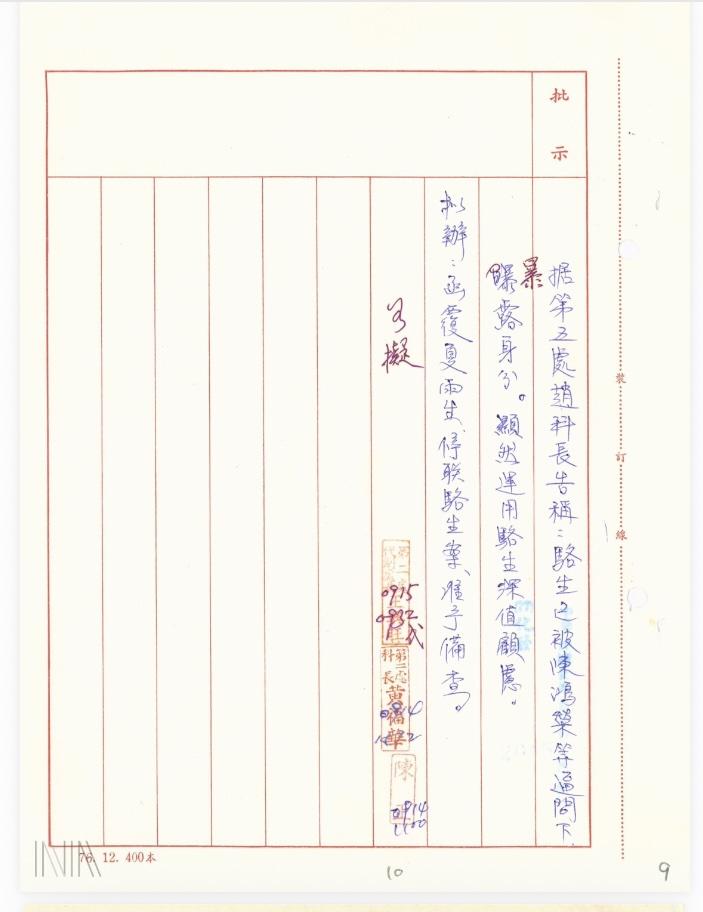 批示
据第五處趙科長告稱：駱生已被陳鴻榮等逼問下，
暴
曝露身分。顯然運用駱生深值顧慮。
拟辦：函覆夏雨生、停联駱生案、准予備查。
擬
0915
0932
代
第二處
科長 黃
0914
陳
0914
1100
裝訂線
76. 12. 400本
10
9